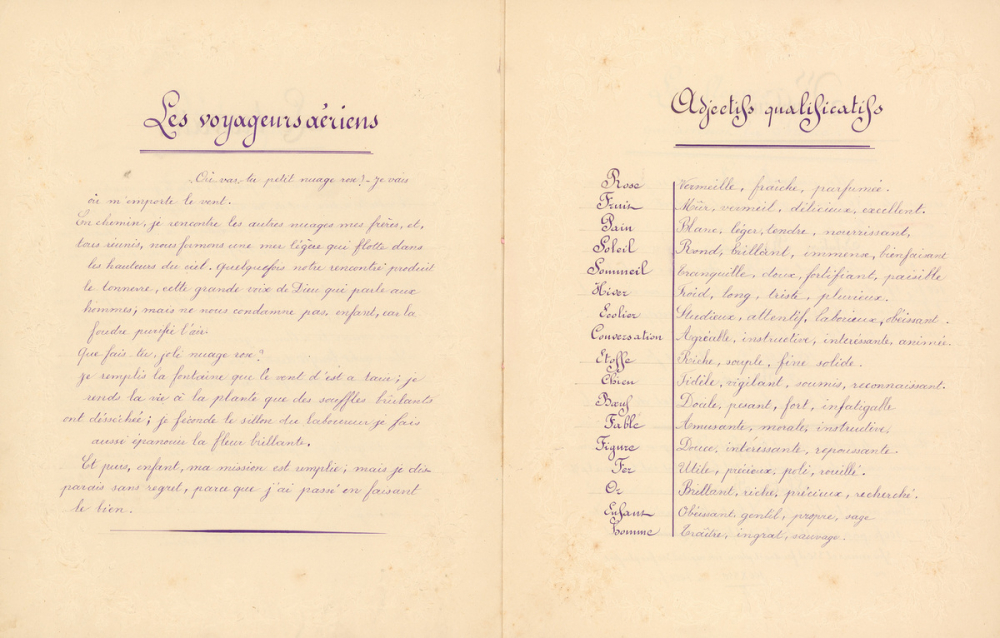 Les voyageurs aériens
Où vas-tu petit nuage rose? - Je vais
où m'emporte le vent.
En chemin, je rencontre les autres nuages mes frères, et,
tous réunis, nous formons une mer légère qui flotte dans
les hauteurs du ciel. Quelquefois notre rencontre produit
le tonnerre, cette grande voix de Dieu qui parle aux
hommes; mais ne nous condamne pas, enfant, car la
foudre purifie l'air.
Que fais-tu, joli nuage rose?
Je remplis la fontaine que le vent d'est a tarie; je
rends la vie à la plante que des souffles brûlants
ont desséchée; je féconde le sillon du laboureur je fais
aussi épanouir la fleur brillante.
Et puis, enfant, ma mission est remplie; mais je dis-
parais sans regret, parce que j'ai passé en faisant
le bien.
Adjectifs qualificatifs
Rose Vermeille, fraîche, parfumée.
Fruit Mûr, vermeil, délicieux, excellent.
Pain Blanc, léger, tendre, nourrissant,
Soleil Rond, brillant, immense, bienfaisant
Sommeil tranquille, doux, fortifiant, paisible
Hiver Froid, long, triste, pluvieux.
Ecolier Studieux, attentif, laborieux, obéissant.
Conversation Agréable, instructive, intéressante, animée.
Etoffe Riche, souple, fine solide.
Chien Fidèle, vigilant, soumis, reconnaissant.
Bœuf Docile, pesant, fort, infatigable
Fable Amusante, morale, instructive.
Figure Douce, intéressante, repoussante.
Fer Utile, précieux, poli, rouillé.
Or Brillant, riche, précieux, recherché.
Enfant Obéissant, gentil, propre, sage
Homme Traître, ingrat, sauvage.